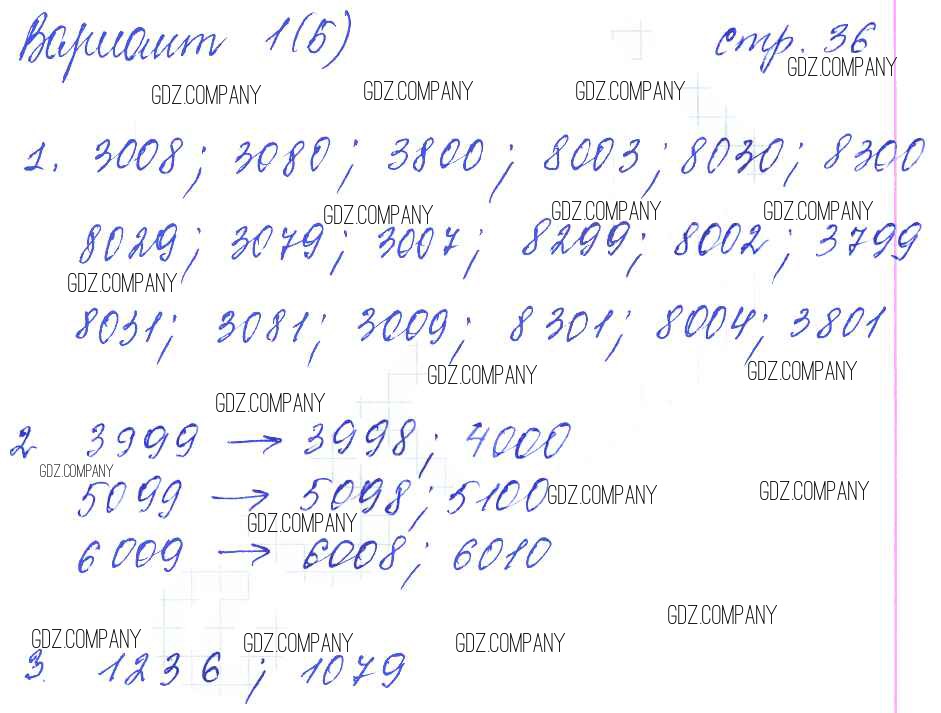 Вариант 1(Б) стр. 36
GDZ.COMPANY
GDZ.COMPANY GDZ.COMPANY GDZ.COMPANY
1. 3008; 3080; 3800; 8003; 8030; 8300
GDZ.COMPANY GDZ.COMPANY GDZ.COMPANY
8029; 3079; 3007; 8299; 8002; 3799
GDZ.COMPANY
8031; 3081; 3009; 8301; 8004; 3801
GDZ.COMPANY GDZ.COMPANY
GDZ.COMPANY
2 3999 → 3998; 4000
GDZ.COMPANY
5099 → 5098; 5100 GDZ.COMPANY GDZ.COMPANY
GDZ.COMPANY
6009 → 6008; 6010
GDZ.COMPANY
GDZ.COMPANY GDZ.COMPANY GDZ.COMPANY
3. 1236; 1079